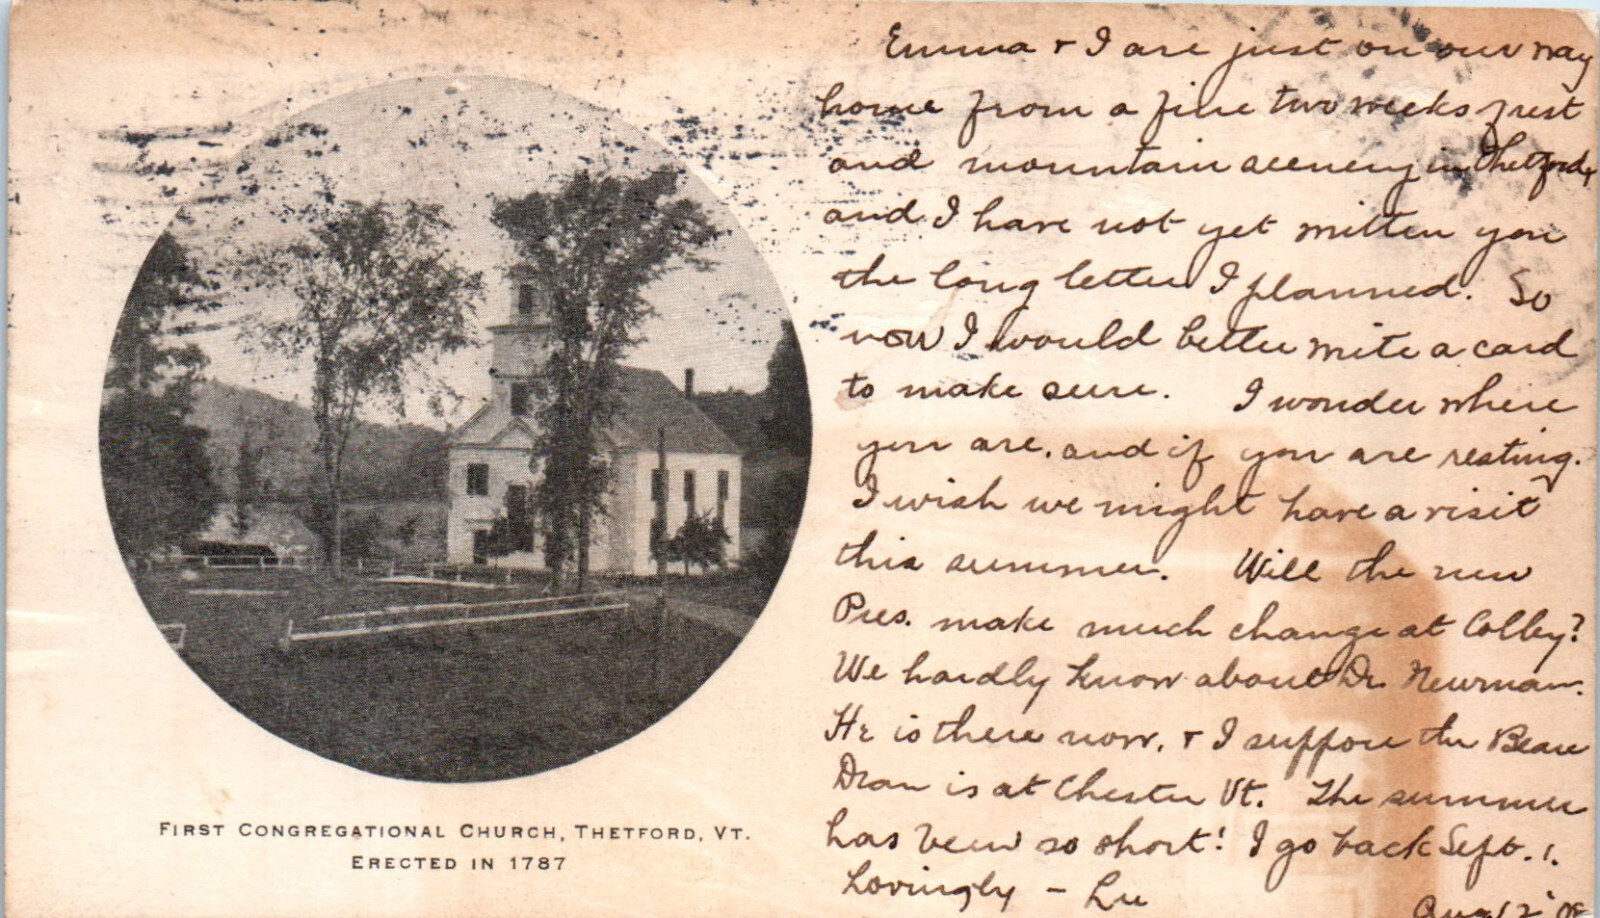 Emma & I are just on our way
home from a fine two weeks rest
and mountain scenery in Thetford,
and I have not yet written you
the long letter I planned. So
now I would better write a card
to make sure. I wonder where
you are, and if you are resting.
I wish we might have a visit
this summer. Will the new
Pres. make much change at Colby?
We hardly know about Dr. Newman.
He is there now, & I suppose the
Dean is at Chester Vt. The summer
has been so short! I go back Sept. 1.
Lovingly - Lu
Aug 12 '08
FIRST CONGREGATIONAL CHURCH, THETFORD, VT.
ERECTED IN 1787